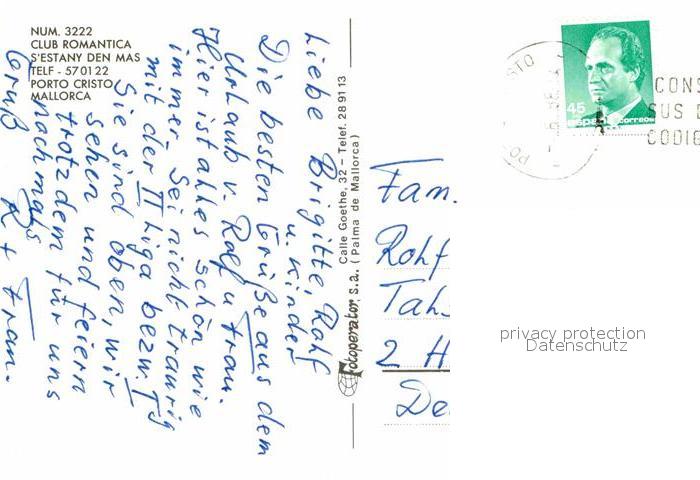 NUM. 3222
CLUB ROMANTICA
S'ESTANY DEN MAS
TELF - 570122
PORTO CRISTO
MALLORCA
Liebe Brigitte, Rolf
u. Kinder
Die besten Grüße aus dem
Urlaub v. Rolf u Fran.
Hier ist alles schön wie
immer. Sei nicht traurig
mit der II Liga bezw. I
Sie sind oben, wir
sehen und feiern
trotzdem für uns
nochmals
Gruß R + Fran.
Fotoperator, s.a.
Calle Goethe, 32 - Telef. 28 91 13
(Palma de Mallorca)
Fam.
Rohf
Tah
2 H
De
45
españa correos
CONS
SUS
CODIG
privacy protection
Datenschutz